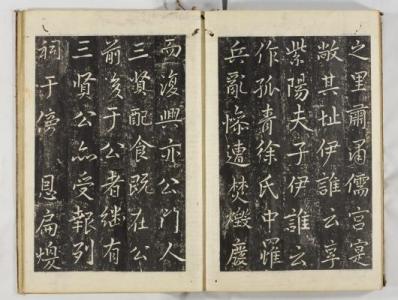 之里肅肅儒宮寔
敞其址伊誰云享
紫陽夫子伊誰云
作孤青徐氏中罹
兵亂慘遭焚燬慶
而復興亦公門人
三賢配食既在公
前後于公者繼有
三賢公亦受報列
祠于傍 恩扁煥